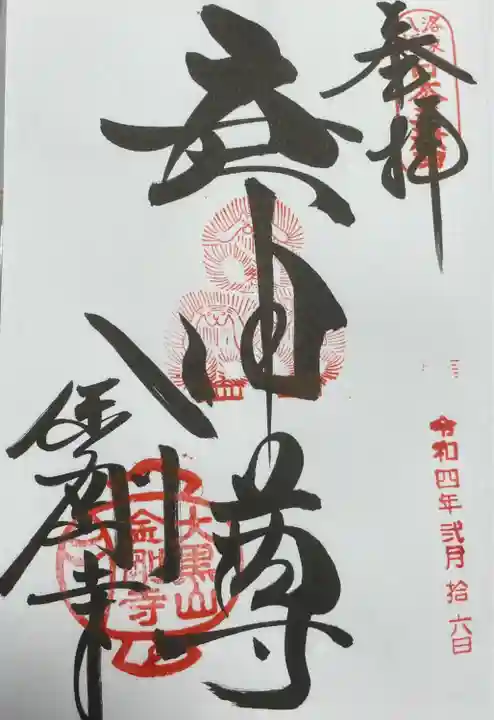 奉拝
庚申尊
金剛寺
大黒山
金剛寺
令和四年弐月拾六日